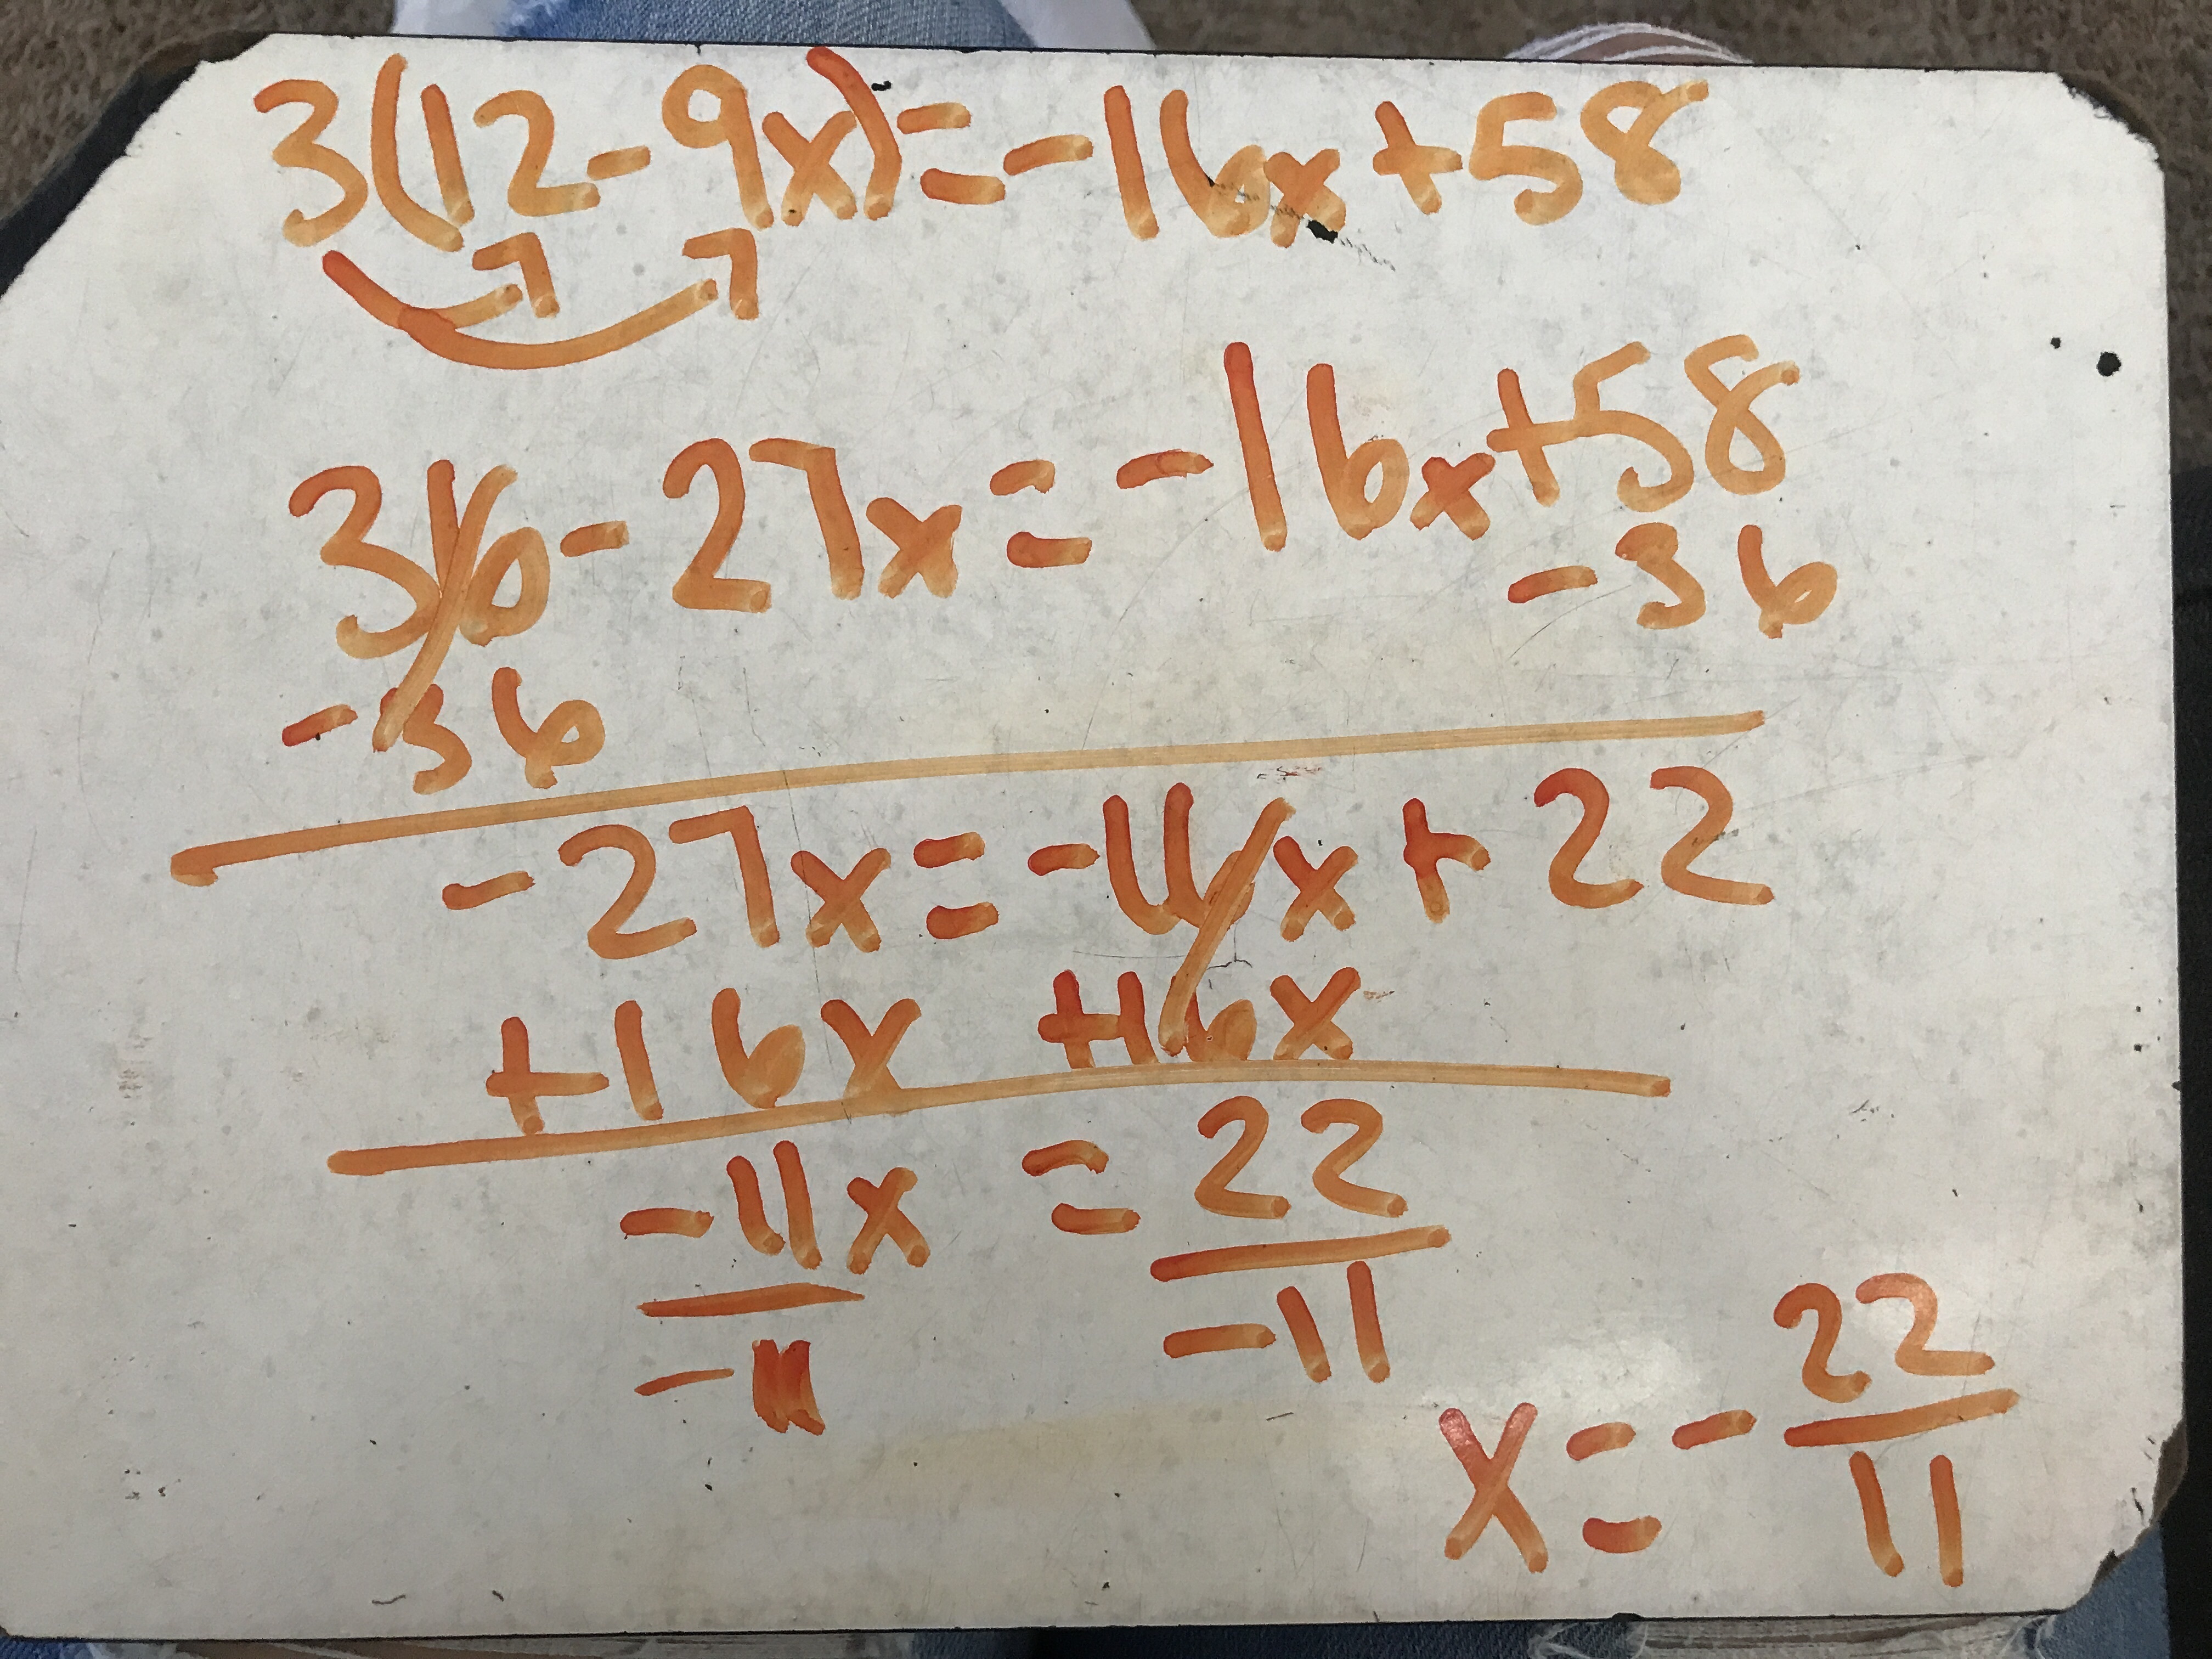 3(12-9x)=-16x+58
36-27x=-16x+58
-36
-36
-27x=-16x+22
+16x +16x
-11x = 22
-11 -11
x=-22/11